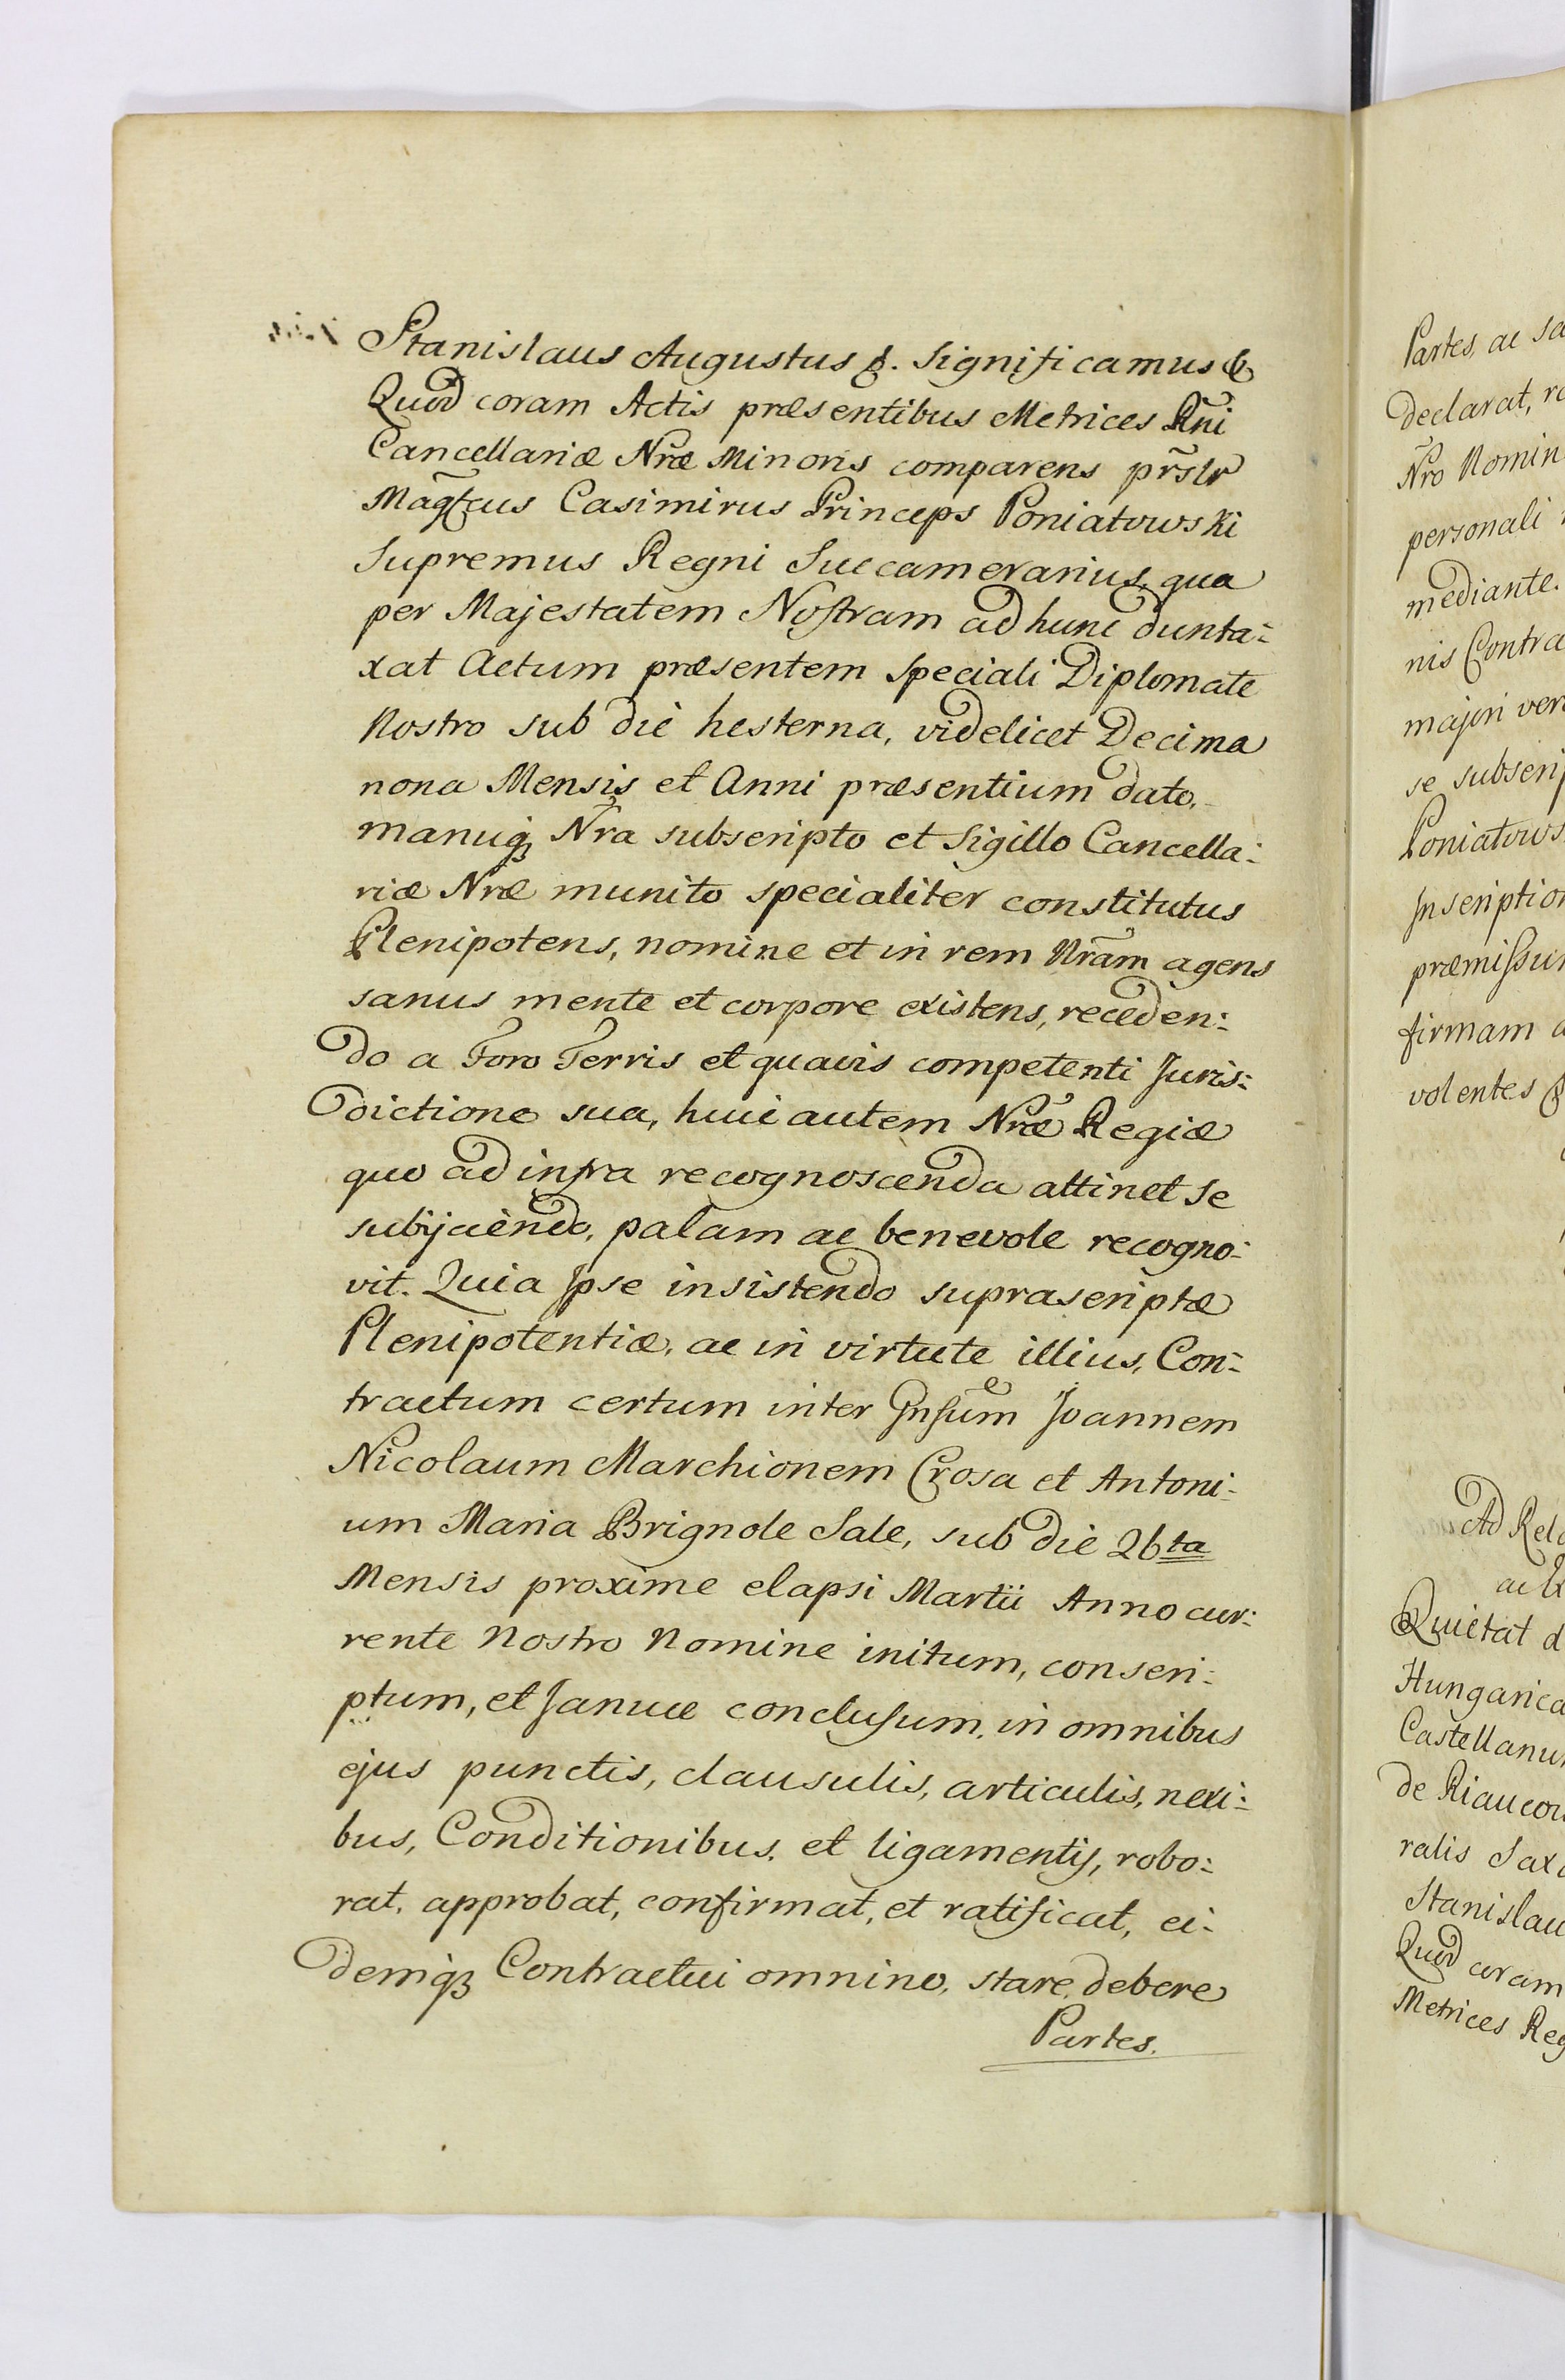 Stanislaus Augustus &. Significamus &
Quod coram Actis præsentibus Metrices Rñi
Cancellariæ Nræ Minoris comparens pr̃slr
Magñcus Casimirus Princeps Poniatowski
Supremus Regni Succamerarius, qua
per Majestatem Nostram ad hunc dunta:
xat Actum præsentem speciali Diplomate
Nostro sub die hesterna, videlicet Decima
nona Mensis et Anni præsentium dato,
manuq; Nr̃a subscripto et Sigillo Cancella:
riæ Nræ munito specialiter constitutus
Plenipotens, nomine et in rem Nram̃ agens
sanus mente et corpore existens, receden:
do a Foro Terris et quavis competenti Juris:
dictione sua, huic autem Nræ Regiæ
quo ad infra recognoscenda attinet se
subijciendo, palam ac benevole recogno:
vit. Quia Ipse insistendo suprascriptæ
Plenipotentiæ, ac in virtute illius, Con:
tractum certum inter Gñsum Joannem
Nicolaum Marchionem Crosa et Antoni:
um Maria Brignole Sale, sub die 26ta
Mensis proxime elapsi Martii Anno cur:
rente Nostro Nomine initum, conscri:
ptum, et Januæ conclusum, in omnibus
ejus punctis, clausulis, articulis, nexi:
bus, Conditionibus, et ligamentis, robo:
rat, approbat, confirmat, et ratificat, ei:
demq; Contractui omnino, stare, debere
Partes.
Partes, ac
declarat,
Nr̃o Nomin
personali
mediante.
nis Contra
majori
se subscrip
Poniatows
Inscription
præmissu
firmam
volentes
Ad Rela
Quietat d
Hungarica
Castellanu
de Riaucou
ralis Saxo
Stanislau
Quod coram
Metrices Reg